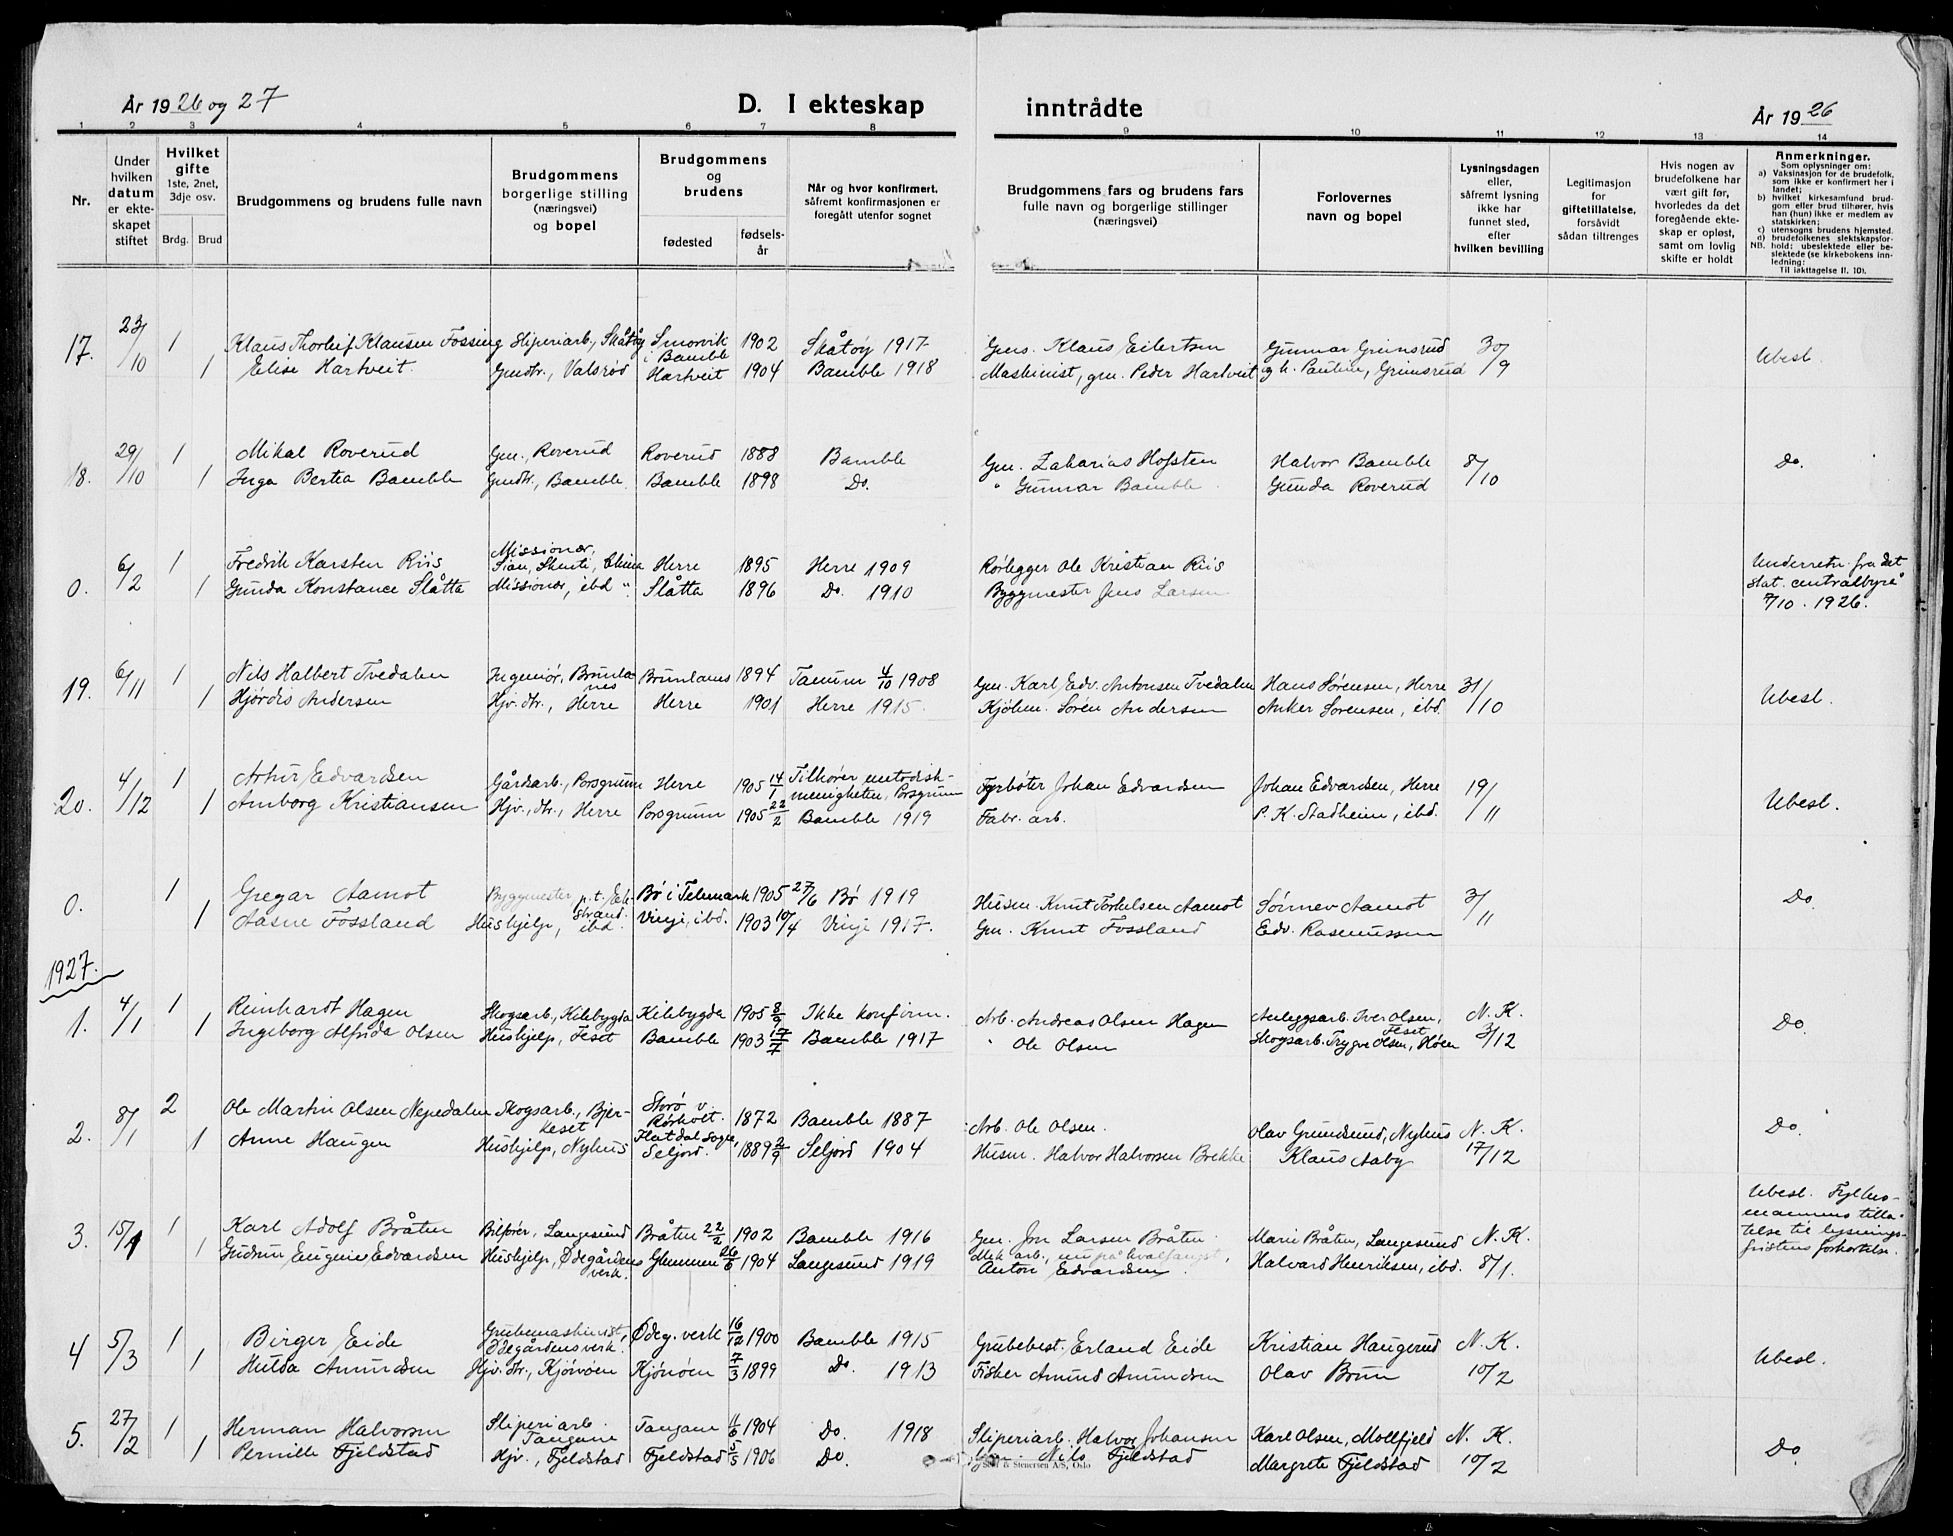 År 1926 og 27
D. I ekteskap inntrådte
År 1926
1 2 3 4 5 6 7 8 9 10 11 12 13 14
Nr.
Under hvilken datum er ekteskapet stiftet
Hvilket gifte 1ste, 2net, 3dje osv.
Brdg. Brud
Brudgommens og brudens fulle navn
Brudgommens borgerlige stilling (næringsvei) og bopel
Brudgommens og brudens
fødested
fødsels-år
Når og hvor konfirmert, såfremt konfirmasjonen er foregått utenfor sognet
Brudgommens fars og brudens fars fulle navn og borgerlige stillinger (næringsvei)
Forlovernes navn og bopel
Lysningsdagen eller, såfremt lysning ikke har funnet sted, efter hvilken bevilling
Legitimasjon for giftetillatelse, forsåvidt sådan tiltrenges
Hvis nogen av brudefolkene har vært gift før, hvorledes da det foregående ekteskap er opløst, samt om lovlig skifte er holdt
Anmerkninger.
Som oplysninger om:
a) Vaksinasjon for de brudefolk, som ikke er konfirmert her i landet;
b) hvilket kirkesamfund brudgom eller brud tilhører, hvis han (hun) ikke er medlem av statskirken;
c) utensogns brudens hjemsted.
d) brudefolkenes slektskapsforhold: ubeslektede eller beslektede (se kirkebokens innledning:
NB.
Til iakttagelse II. 10).
17. 23/10 1 Klaus Thorleif Klausen Fossing Sliperiarb., Skåtøy Smorvik i Bamble 1902 Skåtøy 1917 Gms. Klaus Eilertsen Gunnar Grimsrud 30/9 Ubesl.
1 Elise Hartveit. Gmdtr., Valsrød Hartveit 1904 Bamble 1918 Maskinist, gm. Peder Hartveit og h. Pauline, Grimsrud
18. 29/10 1 Mikal Roverud Gm., Roverud Roverud 1888 Bamble Gm. Zakarias Hofsten Halvor Bamble 8/10 Do.
1 Inga Bertea Bamble Gmdtr., Bamble Bamble 1898 Do. " Gunnar Bamble Gunda Roverud
0. 6/2 1 Fredrik Karsten Riis Missionær, Sian, Shensi, China Herre 1895 Herre 1909 Rørlegger Ole Kristian Riis Underretn. fra det stat. centralbyrå 7/10. 1926.
1 Gunda Konstance Slåtta Missionær, ibd. Slåtta 1896 Do. 1910 Byggmester Jens Larsen
19. 6/11 1 Nils Halbert Tvedalen Ingeniør, Brunlanes Brunlanes 1894 Tanum 4/10 1908 Gm. Karl Edv. Antonsen Tvedalen Hans Sørensen, Herre 31/10 Ubesl.
1 Hjørdis Andersen Hjv. dtr., Herre Herre 1901 Herre 1915. Kjølem. Søren Andersen Anker Sørensen, ibd.
20. 4/12 1 Artur Edvardsen Gårdsarb., Porsgrunn Herre 1905 14/1 Tilhører metodistmenigheten, Porsgrunn Fyrbøter Johan Edvardsen Johan Edvardsen, Herre 19/11 Ubesl.
1 Amborg Kristiansen Hjv. dtr., Herre Porsgrunn 1905 22/2 Bamble 1919 Fabr. arb. P. K. Stadheim, ibd.
0. 1 Gregar Aamot Byggmester p.t. Ekstrand. Bø i Telemark 1905 27/6 Bø 1919 Husm. Knut Torkelsen Aamot Sønnev Aamot 3/11 Do.
1 Aasne Fossland Hushjelp, ibd. Vinje, ibd. 1903 10/4 Vinje 1917. Gm. Knut Fossland Edv. Rasmussen
1927.
1. 4/1 1 Reinhardt Hagen Skogsarb., Kilebygda Kilebygda 1905 8/9 Ikke konfirm. Arb. Andreas Olsen Hagen Anleggsarb. Iver Olsen, Feset N. K. 3/12 Do.
1 Ingeborg Alfrida Olsen Hushjelp, Feset Bamble 1903 17/7 Bamble 1917 " Ole Olsen Skogsarb. Trygve Olsen, Høen
2. 8/1 2 Ole Martin Olsen Nepedalen Skogsarb., Bjerkeset Storø v. Rørholt. 1872 Bamble 1887 Arb. Ole Olsen. Olav Grundsund, Nyhus N. K. 17/12 Do.
1 Anne Haugen Hushjelp, Nyhus Flatdal sogn, Seljord. 1889 2/9 Seljord 1904 Husm. Halvor Halvorsen Brekke Klaus Aaby
3. 15/1 1 Karl Adolf Bråten Bilfører, Langesund Bråten 22/2 1902 Bamble 1916 Gm. Jon Larsen Bråten. Marie Bråten, Langesund N. K. 8/1. Ubesl. Fylkesmannens tillatelse til lysningsfristens forkortelse.
1 Gudrun Eugenie Edvardsen Hushjelp, Ødegårdens verk. Glemmen 26/6 1904 Langesund 1919 Mek. arb., nu på hvalfangst, Anton Edvardsen. Halvard Henriksen, ibd.
4 5/3 1 Birger Eide Grubemaskinist, Ødegårdens verk. Ødeg. verk 16/12 1900 Bamble 1915 Grubebest. Erland Eide Kristian Haugerud N. K. 10/2 Ubesl.
1 Hulda Amundsen Hjv. dtr., Kjønøen Kjønøen 7/3 1899 Do. 1913 Fisker Amund Amundsen Olav Brun
5. 27/2 1 Herman Halvorsen Sliperiarb. Tangane Tangane 11/6 1904 Do. 1918 Sliperiarb. Halvor Johansen Karl Olsen, Mollfjeld N. K. 10/2 Do
1 Pernille Fjeldstad Hjv., Fjeldstad Fjeldstad 5/5 1906 Do. Gm. Nils Fjeldstad Margrete Fjeldstad
& Stenersen A/S, Oslo